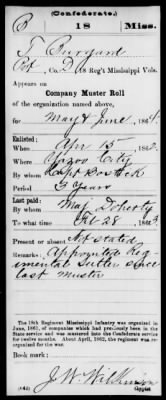 (Confederate.)
B 18 Miss.
T Burgard
Pvt, Co. D, 18 Reg't Mississippi Vols.
Appears on
Company Muster Roll
of the organization named above,
for May & June, 1863.
Enlisted:
When Apr 15, 186
Where Yazoo City
By whom Capt Bostick
Period 3 Years
Last paid:
By whom Maj. Doherty
To what time Feb 28, 1863
Present or absent Not stated
Remarks: Appointed Reg
imental Sutler since
last muster
The 18th Regiment Mississippi Infantry was organized in
June, 1861, of companies which had previously been in the
State service and was mustered into the Confederate service
for twelve months. About April, 1862, the regiment was re-
organized for the war.
Book mark:
J. W. Wilkinson
(642) Copyist.